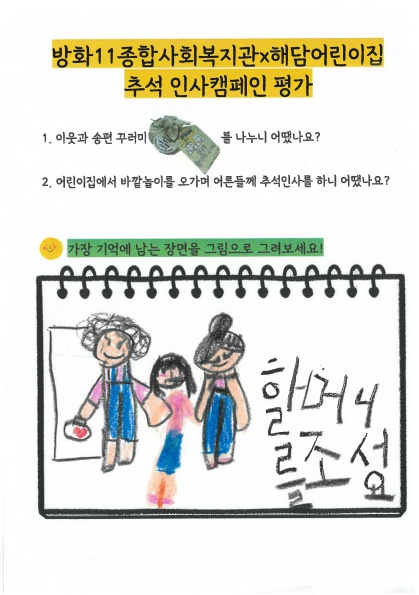 방화11종합사회복지관x해담어린이집
추석 인사캠페인 평가
1. 이웃과 송편 꾸러미 를 나누니 어땠나요?
2. 어린이집에서 바깥놀이를 오가며 어른들께 추석인사를 하니 어땠나요?
가장 기억에 남는 장면을 그림으로 그려보세요!
할머니
를조성
요